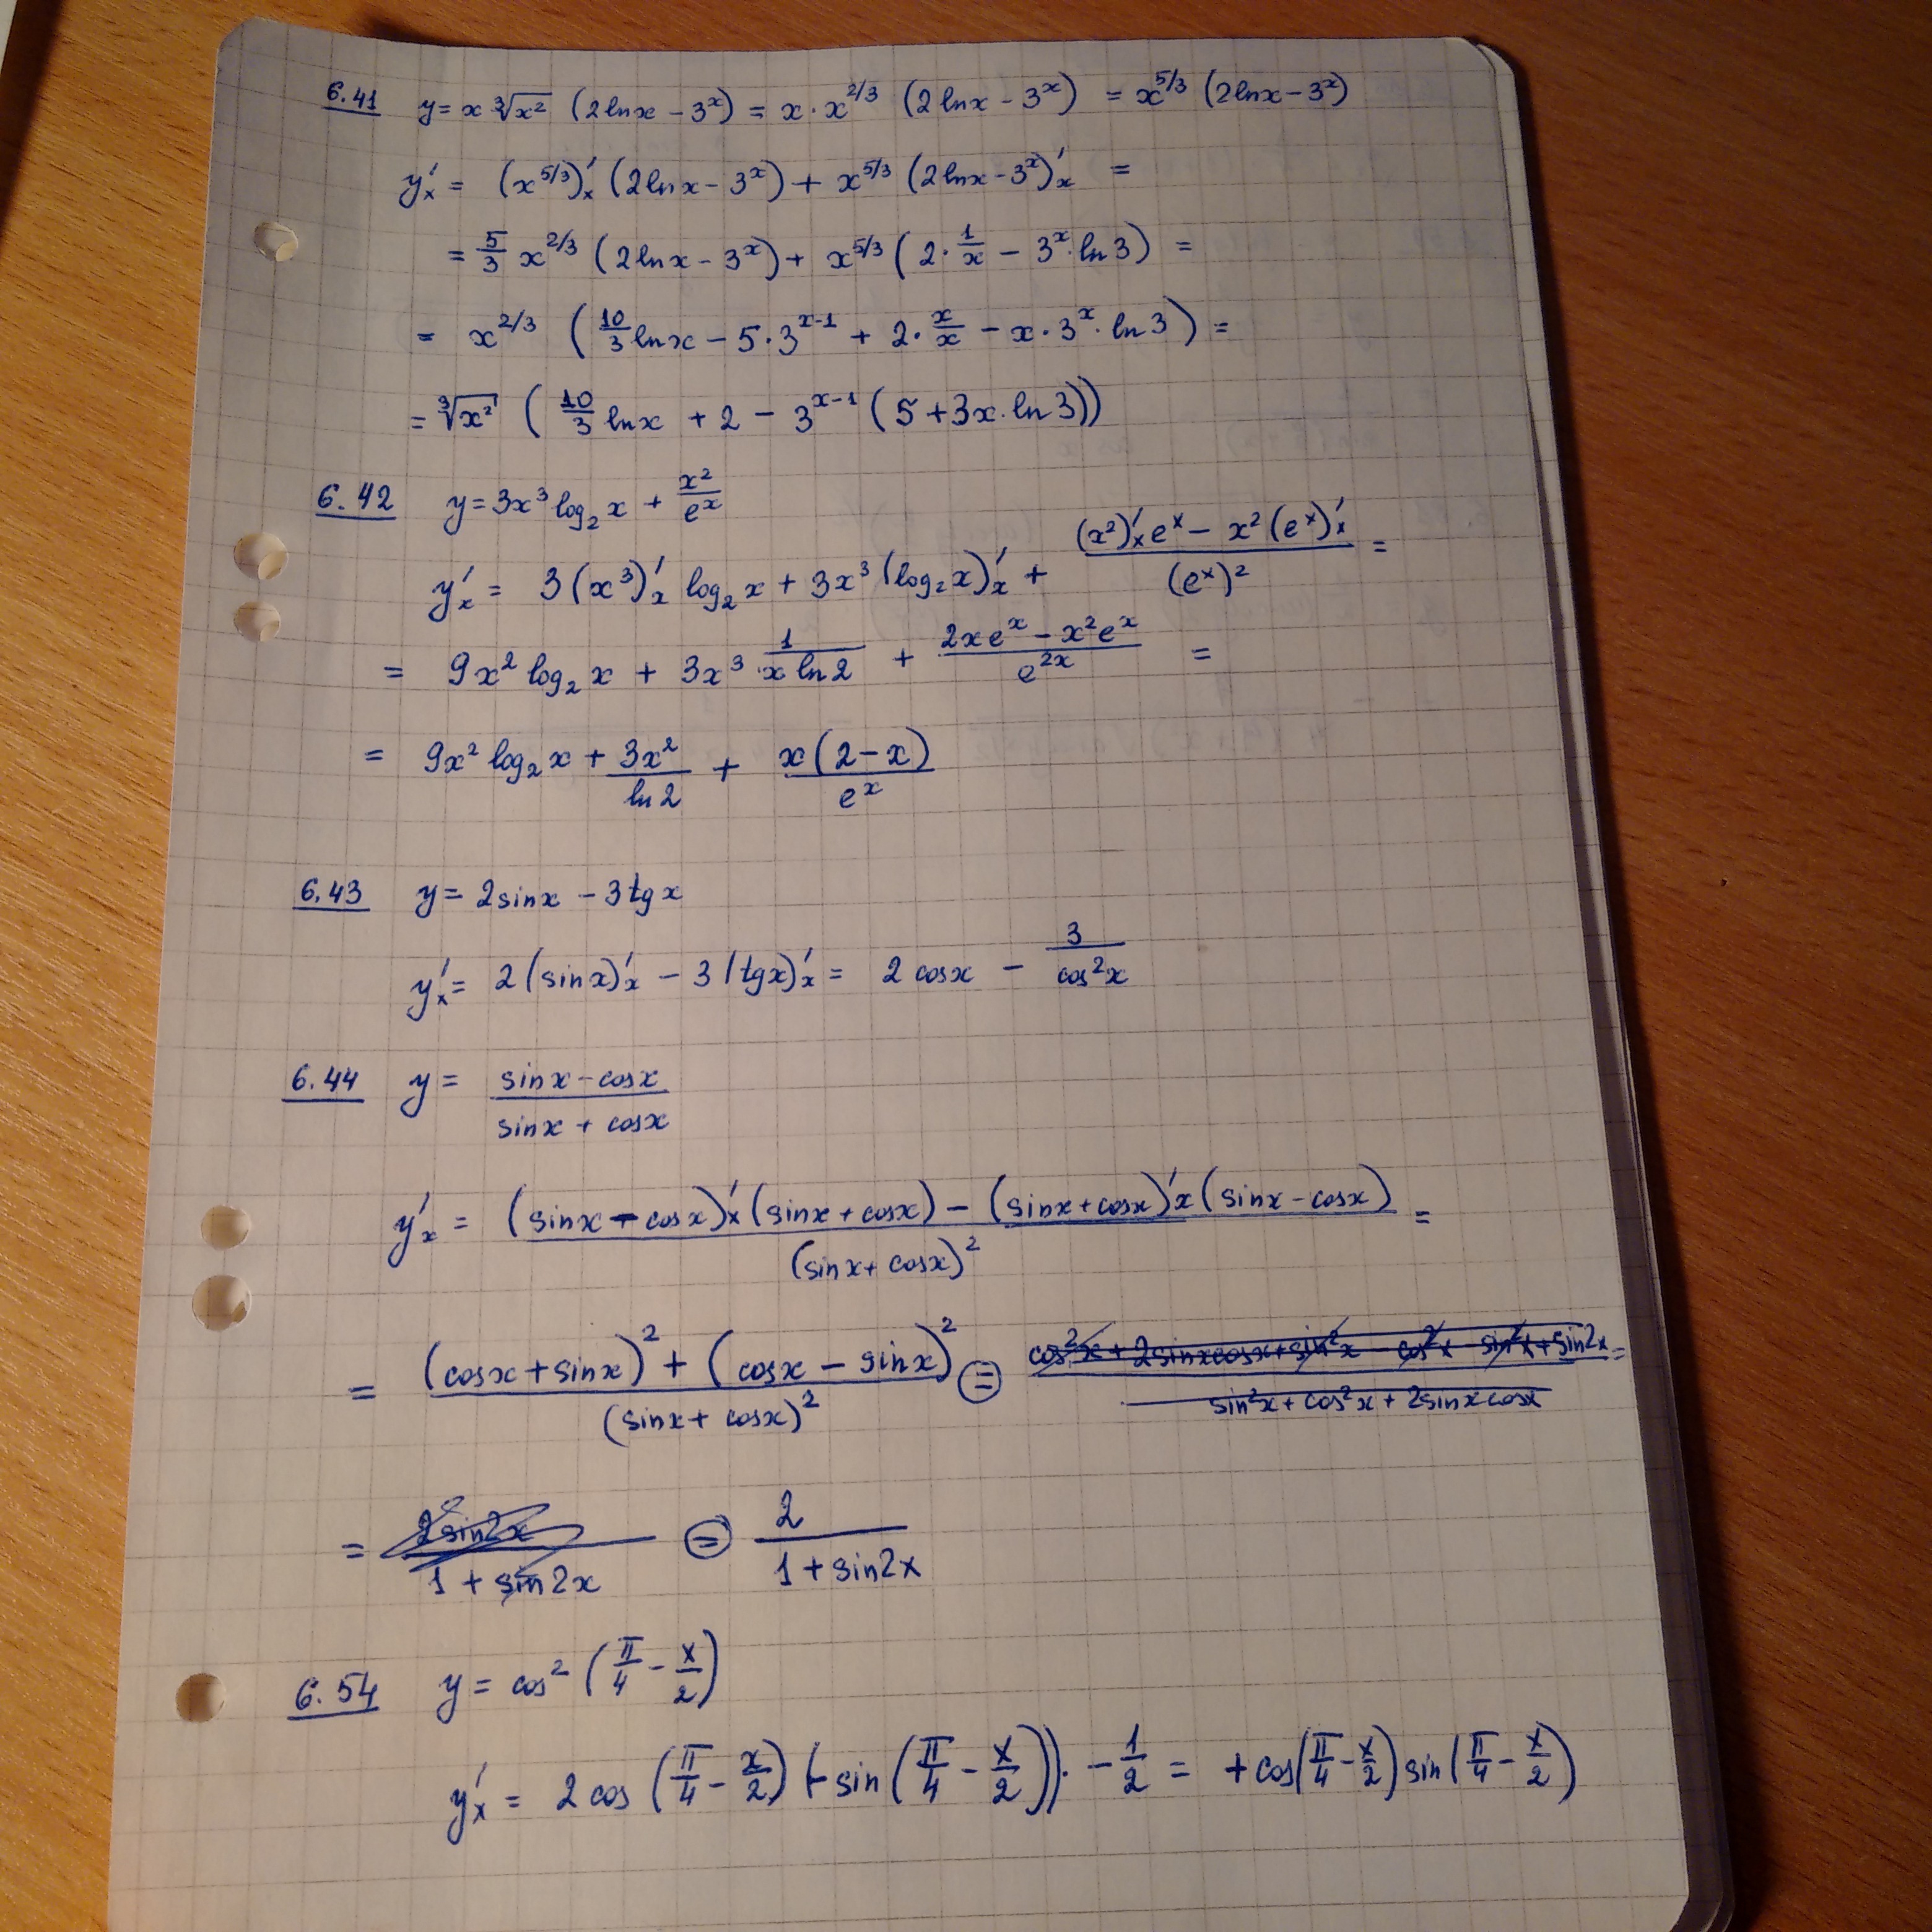 6.41 y = x ∛x² (2lnx − 3ˣ) = x · x^{2/3} (2lnx − 3ˣ) = x^{5/3} (2lnx − 3ˣ)
y'ₓ = (x^{5/3})'ₓ (2lnx − 3ˣ) + x^{5/3} (2lnx − 3ˣ)'ₓ =
= 5/3 x^{2/3} (2lnx − 3ˣ) + x^{5/3} (2 · 1/x − 3ˣ · ln3) =
= x^{2/3} (10/3 lnx − 5 · 3^{x−1} + 2 · x/x − x · 3ˣ · ln3) =
= ∛x² (10/3 lnx + 2 − 3^{x−1} (5 + 3x · ln3))
6.42 y = 3x³ log₂x + x²/eˣ
y'ₓ = 3(x³)'ₓ log₂x + 3x³ (log₂x)'ₓ + ((x²)'ₓ eˣ − x² (eˣ)'ₓ)/(eˣ)² =
= 9x² log₂x + 3x³ · 1/(x ln2) + (2xeˣ − x²eˣ)/e^{2x} =
= 9x² log₂x + 3x²/ln2 + x(2−x)/eˣ
6.43 y = 2sinx − 3tgx
y'ₓ = 2(sinx)'ₓ − 3(tgx)'ₓ = 2cosx − 3/cos²x
6.44 y = (sinx − cosx)/(sinx + cosx)
y'ₓ = ((sinx − cosx)'ₓ (sinx + cosx) − (sinx + cosx)'ₓ (sinx − cosx))/(sinx + cosx)² =
= ((cosx + sinx)² + (cosx − sinx)²)/(sinx + cosx)² = (cos²x + 2sinxcosx + sin²x − cos²x − sin²x + sin2x)/(sin²x + cos²x + 2sinxcosx) =
= 2sin2x/(1 + sin2x) = 2/(1 + sin2x)
6.54 y = cos² (π/4 − x/2)
y'ₓ = 2cos (π/4 − x/2) (−sin (π/4 − x/2)) · −1/2 = +cos(π/4 − x/2) sin(π/4 − x/2)